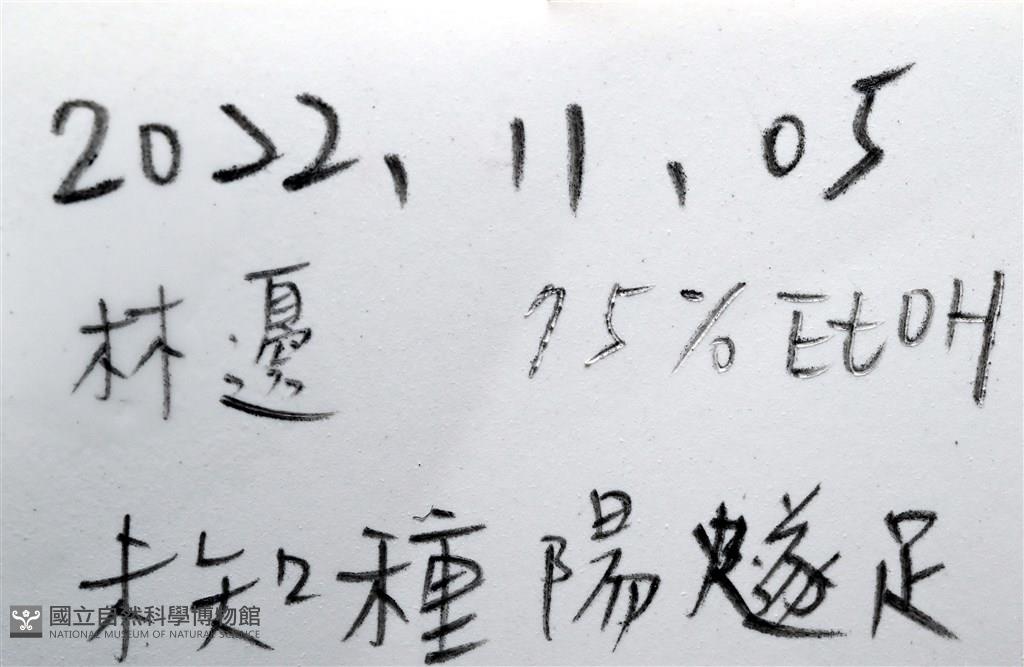 2022.11.05
林邊 75% EtOH
未知種陽燧足
國立自然科學博物館
NATIONAL MUSEUM OF NATURAL SCIENCE